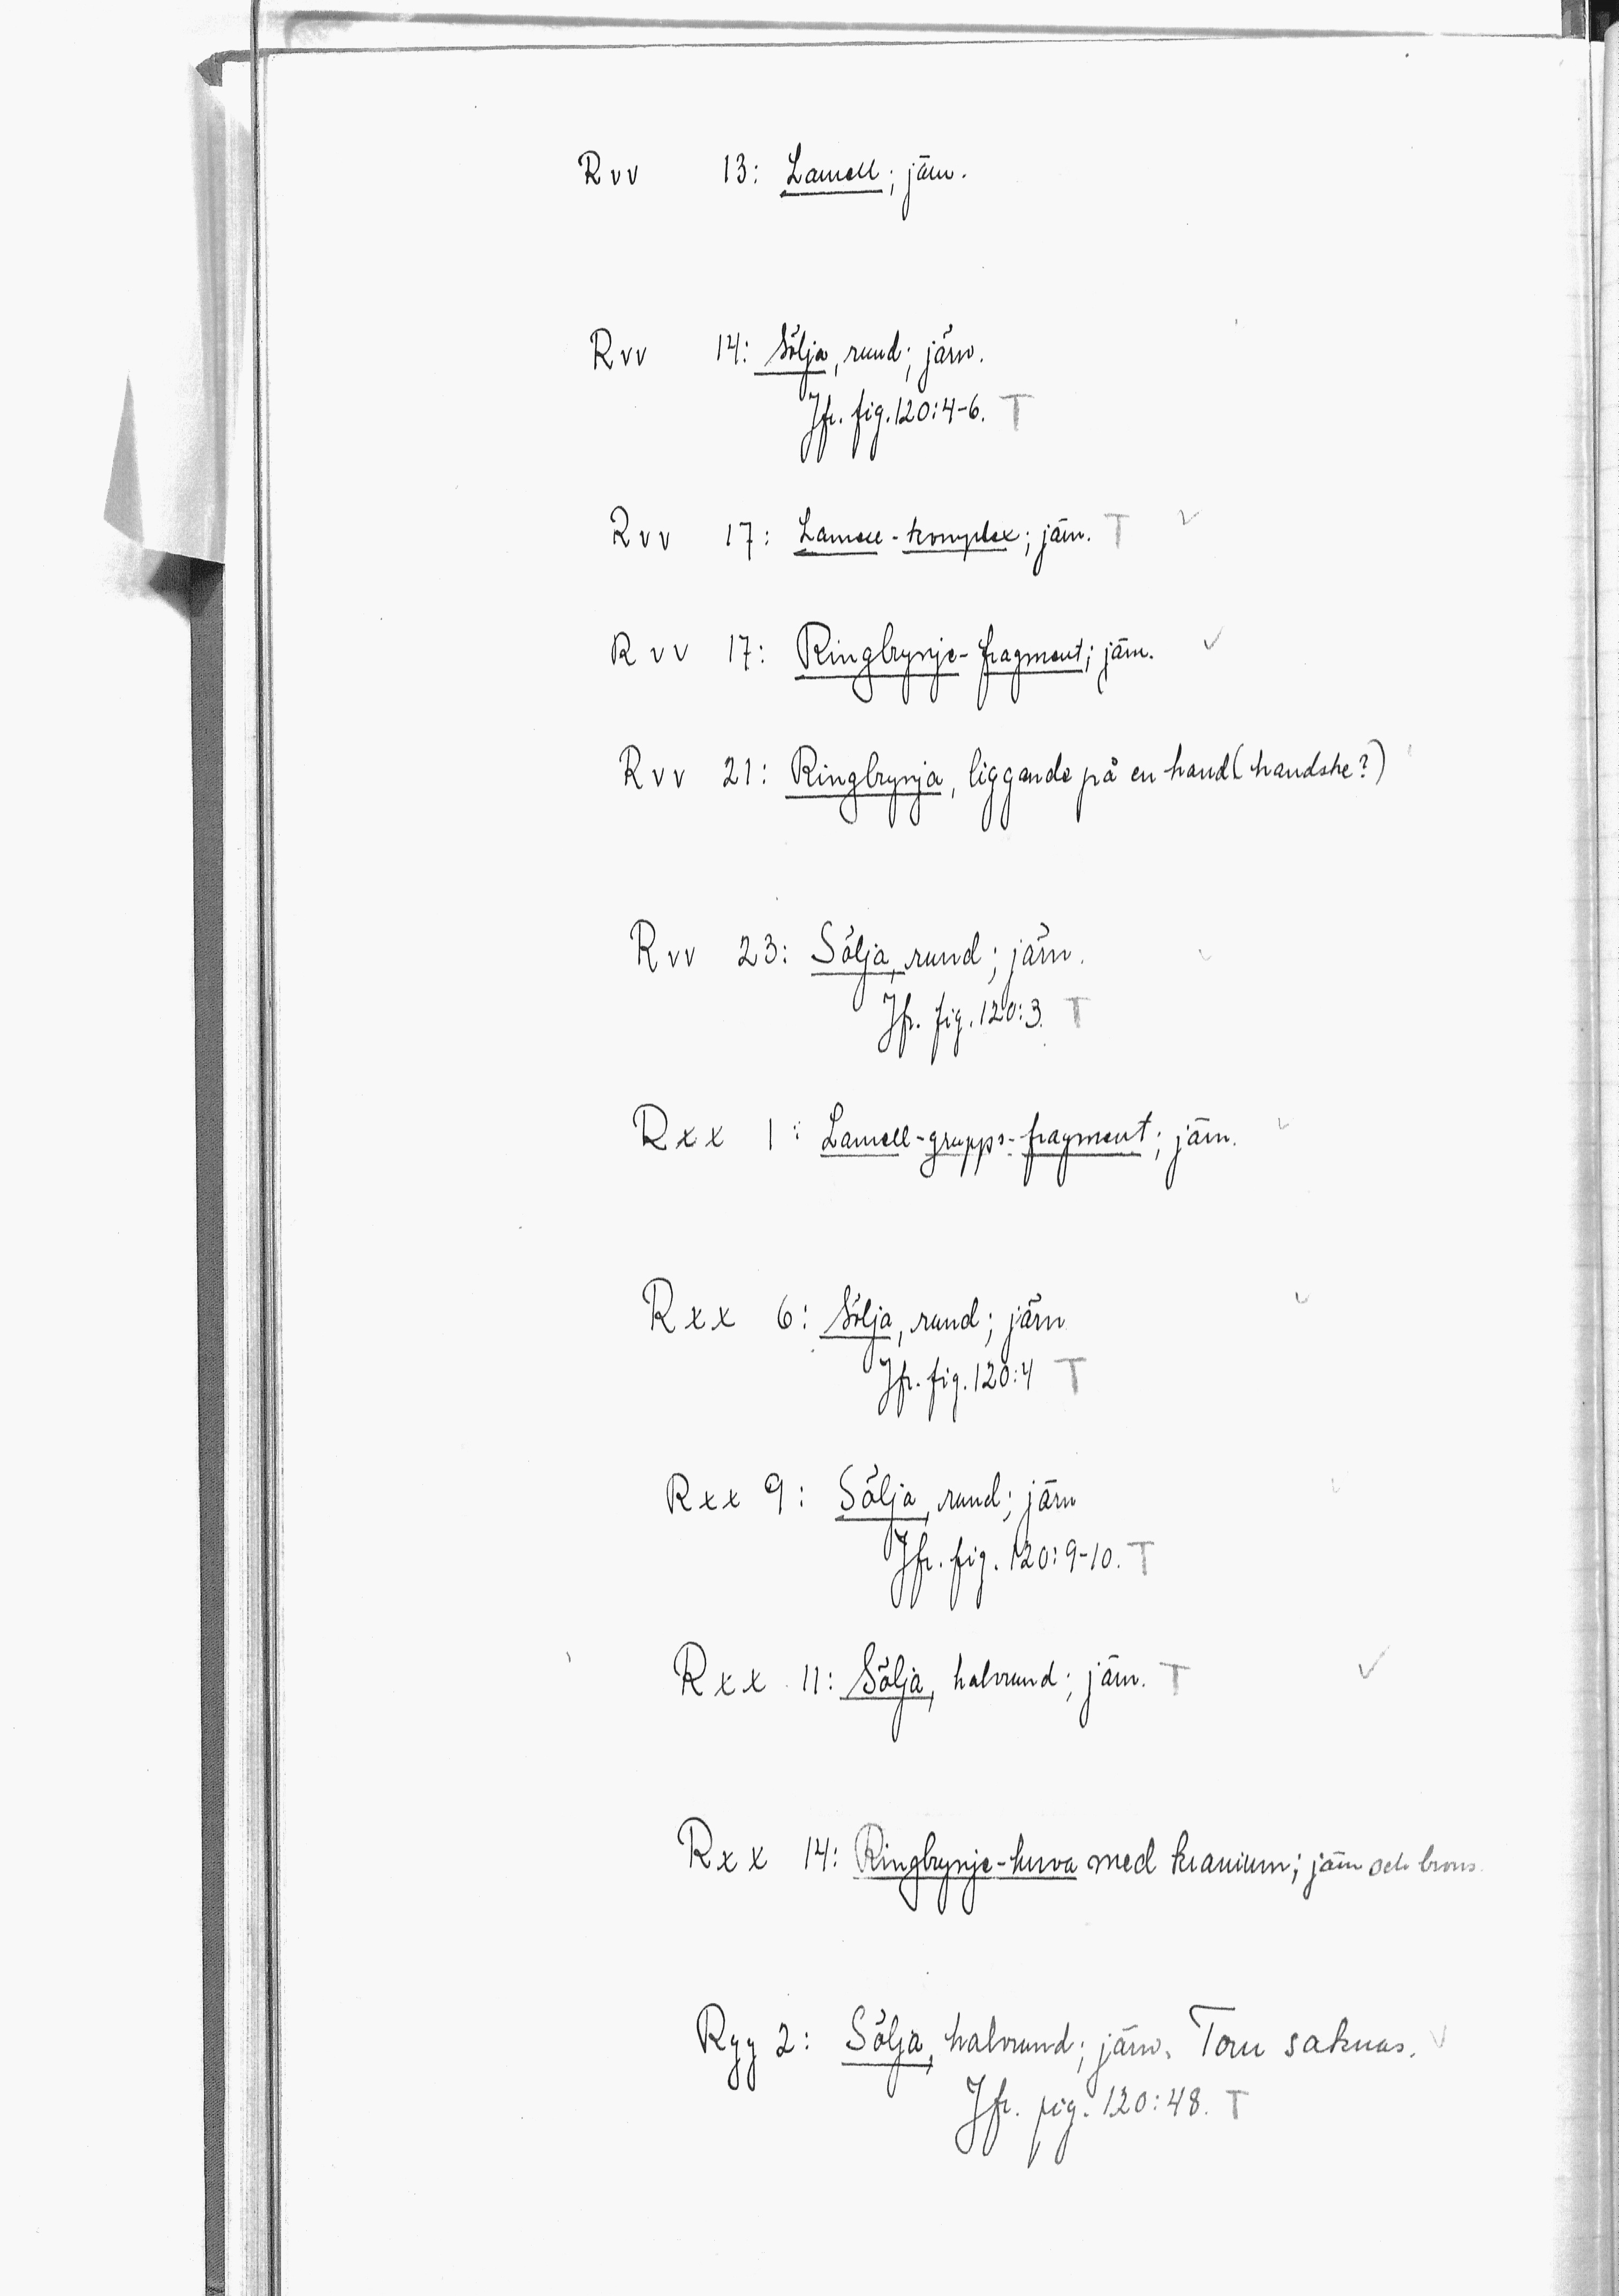 Rvv 13: Lamell; järn.
Rvv 14: Sölja, rund; järn.
Jfr. fig. 120:4-6. T
Rvv 17: Lamell-komplex; järn. T
Rvv 17: Ringbrynje-fragment; järn.
Rvv 21: Ringbrynja, liggande på en hand (handske?)
Rvv 23: Sölja, rund; järn.
Jfr. fig. 120:3. T
Rxx 1: Lamell-grupps-fragment; järn.
Rxx 6: Sölja, rund; järn
Jfr. fig. 120:4 T
Rxx 9: Sölja, rund; järn
Jfr. fig. 120:9-10. T
Rxx 11: Sölja, halvrund; järn. T
Rxx 14: Ringbrynje-huva med kranium; järn och brons.
Ryy 2: Sölja, halvrund; järn. Torn saknas.
Jfr. fig. 120:48. T